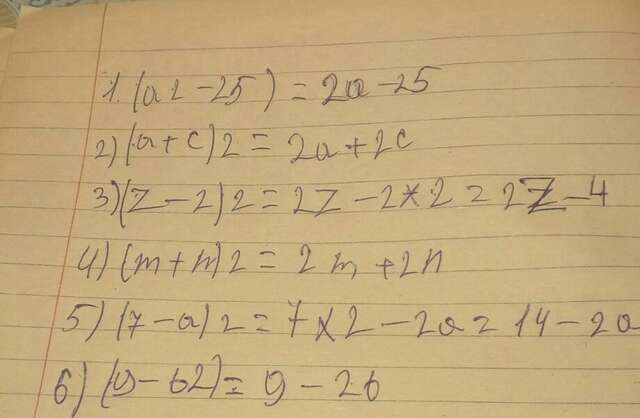 1. (a2-25) = 2a-25
2) (a+c)2 = 2a+2c
3) (z-2)2 = 2z-2*2 = 2z-4
4) (m+n)2 = 2m+2n
5) (7-a)2 = 7*2-2a = 14-2a
6) (9-b2) = 9-2b